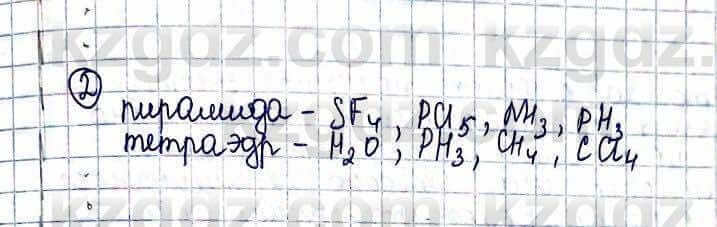 kzgdz.com kzgdz.com
② пирамида – SF₄, PCl₅, NH₃, PH₃
тетраэдр – H₂O, PH₃, CH₄, CCl₄
kzgdz.com kzgdz.com